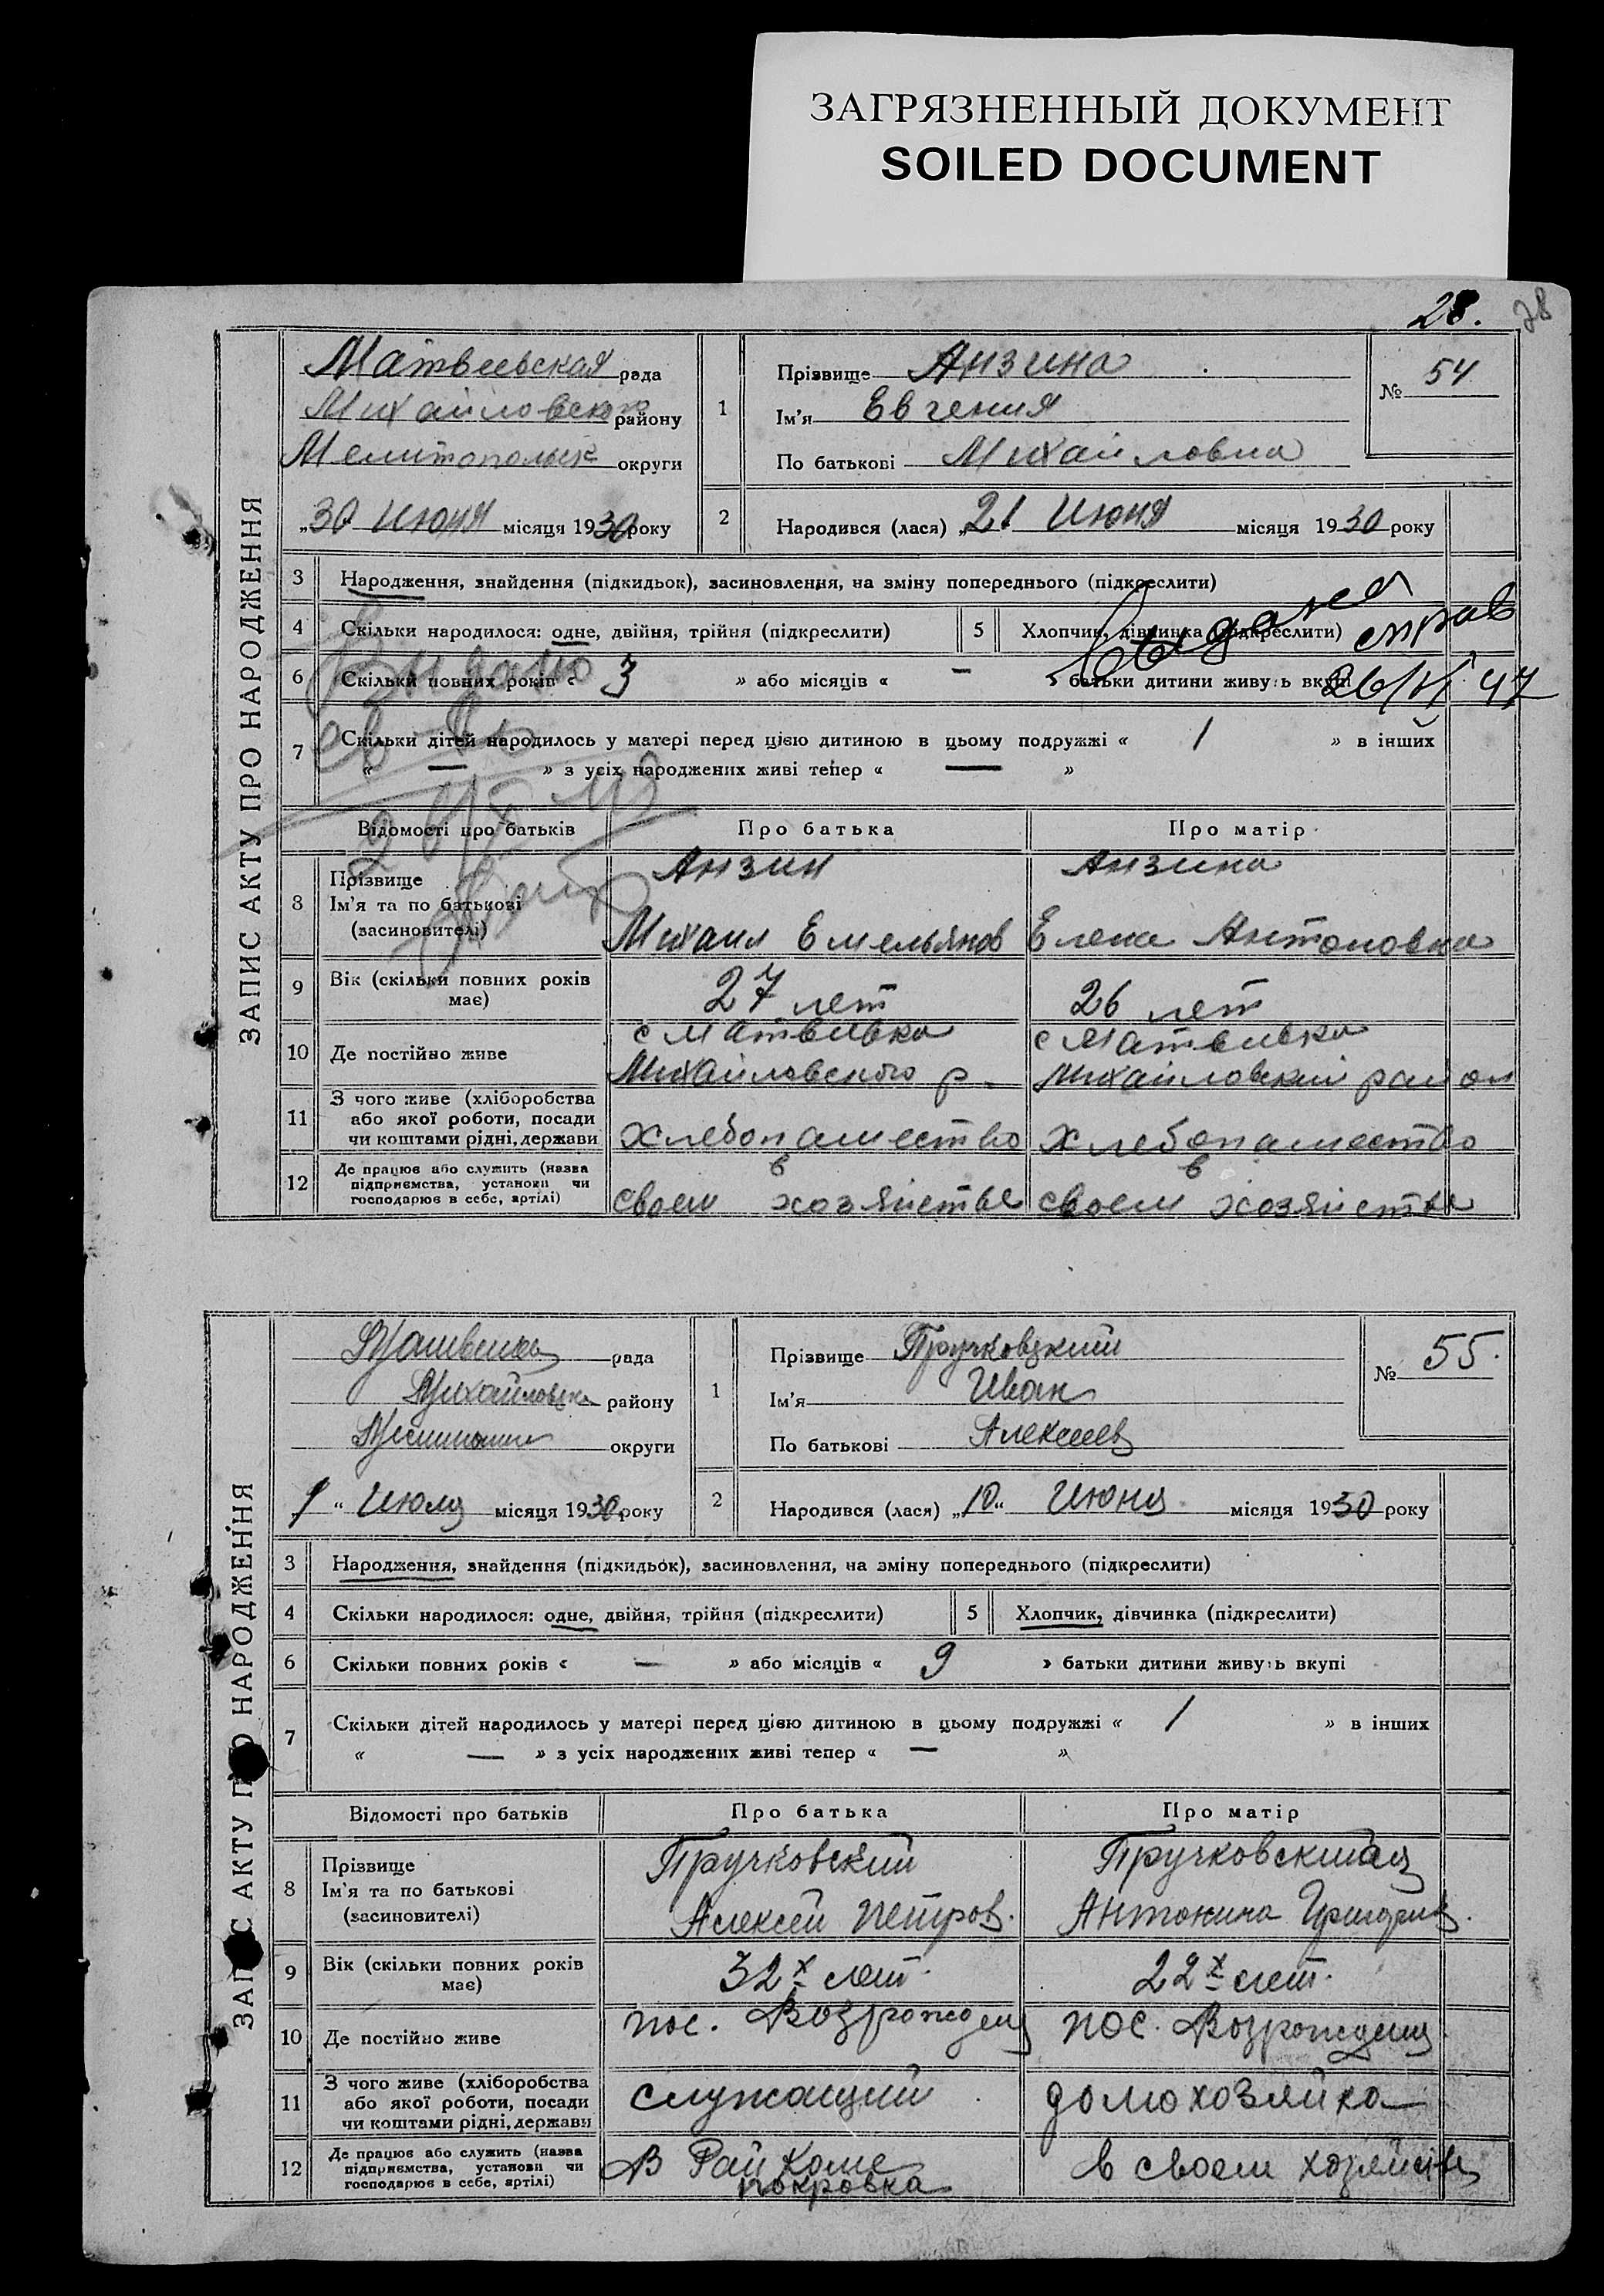 ЗАГРЯЗНЕННЫЙ ДОКУМЕНТ
SOILED DOCUMENT
28. 28
ЗАПИС АКТУ ПРО НАРОДЖЕННЯ
Матвеевская рада
Михайловского району
Мелитопольск округи
„30 Июня місяця 1930 року
1 Прізвище Анзина
Ім'я Евгения
По батькові Михайловна
№ 54
2 Народився (лася) „21 Июня місяця 1930 року
3 Народження, знайдення (підкидьок), засиновлення, на зміну попереднього (підкреслити)
4 Скільки народилося: одне, двійня, трійня (підкреслити) 5 Хлопчик, дівчинка (підкреслити)
Выдана справ
26/VI 47
6 Скільки повних років « 3 » або місяців « — » батьки дитини живуть вкупі
Выдано
7 Скільки дітей народилось у матері перед цією дитиною в цьому подружжі « 1 » в інших
« — » з усіх народжених живі тепер « — »
св-во
Відомості про батьків Про батька Про матір
8 Прізвище Ім'я та по батькові (засиновителі) Анзин Анзина
Михаил Емельянов Елена Антоновна
9 Вік (скільки повних років має) 27 лет 26 лет
10 Де постійно живе с Матвиевка с Матвиевка
Михайловского р. Михайловский район
11 З чого живе (хліборобства або якої роботи, посади чи коштами рідні, держави хлебопашество хлебопашество
12 Де працює або служить (назва підприємства, установи чи господарює в себе, артілі) в своем хозяйстве в своем хозяйстве
ЗАПИС АКТУ ПРО НАРОДЖЕННЯ
рада
Михайловск району
округи
1 " Июля місяця 1930 року
1 Прізвище Пручковский
Ім'я Иван
По батькові Алексеев
№ 55.
2 Народився (лася) „10" Июня місяця 1930 року
3 Народження, знайдення (підкидьок), засиновлення, на зміну попереднього (підкреслити)
4 Скільки народилося: одне, двійня, трійня (підкреслити) 5 Хлопчик, дівчинка (підкреслити)
6 Скільки повних років « — » або місяців « 9 » батьки дитини живуть вкупі
7 Скільки дітей народилось у матері перед цією дитиною в цьому подружжі « 1 » в інших
« — » з усіх народжених живі тепер « — »
Відомості про батьків Про батька Про матір
8 Прізвище Ім'я та по батькові (засиновителі) Пручковский Пручковская
Алексей Петров. Антонина Григорьев.
9 Вік (скільки повних років має) 32х лет. 22х лет.
10 Де постійно живе пос. Возрождения пос. Возрождения
11 З чого живе (хліборобства або якої роботи, посади чи коштами рідні, держави служащий домохозяйка
12 Де працює або служить (назва підприємства, установи чи господарює в себе, артілі) В Рай Коме в своем хозяйстве
покровка